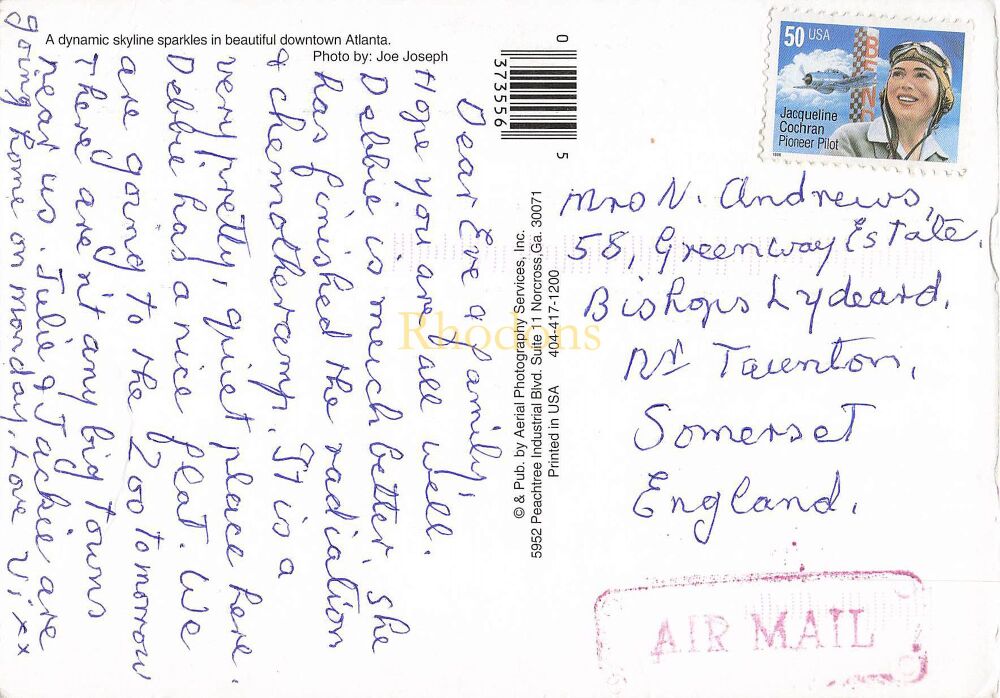 A dynamic skyline sparkles in beautiful downtown Atlanta.
Photo by: Joe Joseph
Dear Eve & family
Hope you are all well.
Debbie is much better, she
has finished the radiation
& chemotheramp. It is a
very pretty, quiet place here.
Debbie has a nice flat. We
are going to the Zoo tomorrow
There aren't any big towns
near us. Julie & Jackie are
going home on monday, Love Vi xx
0
373556
5
© & Pub. by Aerial Photography Services, Inc.
5952 Peachtree Industrial Blvd. Suite 11 Norcross,Ga. 30071
Printed in USA 404-417-1200
Rhodons
50 USA
Jacqueline
Cochran
Pioneer Pilot
1996
Mrs N. Andrews,
58, Greenway Estate.
Bishops Lydeard.
Nr Taunton,
Somerset
England.
AIR MAIL